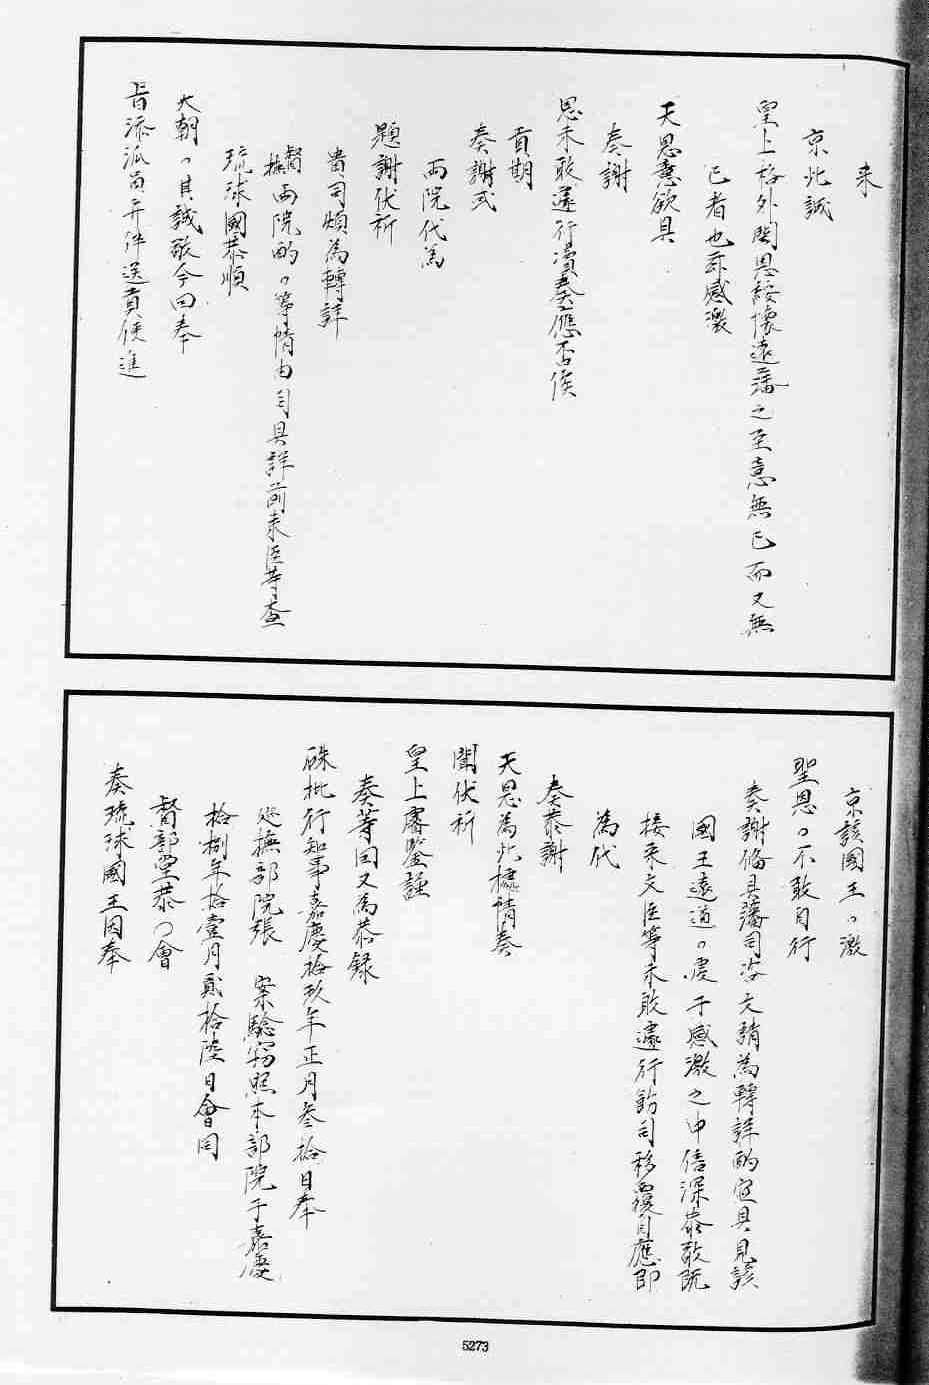 来
京此誠
皇上格外闓恩綏懷遠藩之至意無已而又無
已者也亦感激
天恩意欲具
奏謝
恩未敢遽行瀆奏應否俟
貢期
奏謝或
両院代為
題謝伏祈
貴司煩為轉詳
督撫両院酌〻等情由司具詳前来臣等查
琉球國恭順
大朝〻其誠敬今囬奉
旨添派員弁伴送貢使進
京該國王〻激
聖恩〻不敢自行
奏謝俻具藩司咨文請為轉詳酌宜具見該
國王遠道〻虔于感激之中倍深恭敬既
接来文臣等未敢遽行飭司移覆自應即
為代
奏恭謝
天恩為此據情奏
聞伏祈
皇上睿鑒謹
奏等因又為恭録
硃批行知事嘉慶拾玖年正月叁拾日奉
巡撫部院張　案驗窃照本部院于嘉慶
拾捌年拾壹月貳拾陸日會同
督部堂恭〻會
奏琉球國王因奉
5273